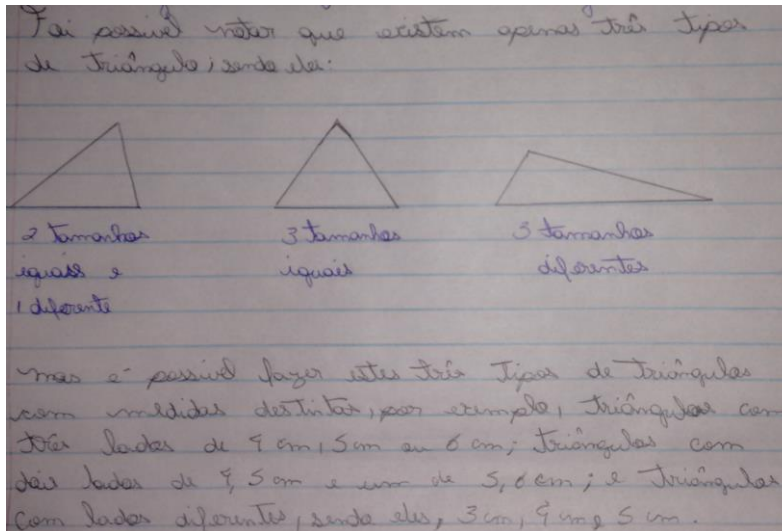 Foi possivel notar que existem apenas três tipos
de triângulo; sendo eles:
2 tamanhos
iguais e
1 diferente
3 tamanhos
iguais
3 tamanhos
diferentes
mas é possivel fazer estes três tipos de triângulos
com medidas destintas, por exemplo, triângulos com
três lados de 4 cm, 5 cm ou 6 cm; triângulos com
dois lados de 4, 5 cm e um de 5, 6 cm; e triângulos
com lados diferentes, sendo eles, 3 cm, 4 cm, 5 cm.